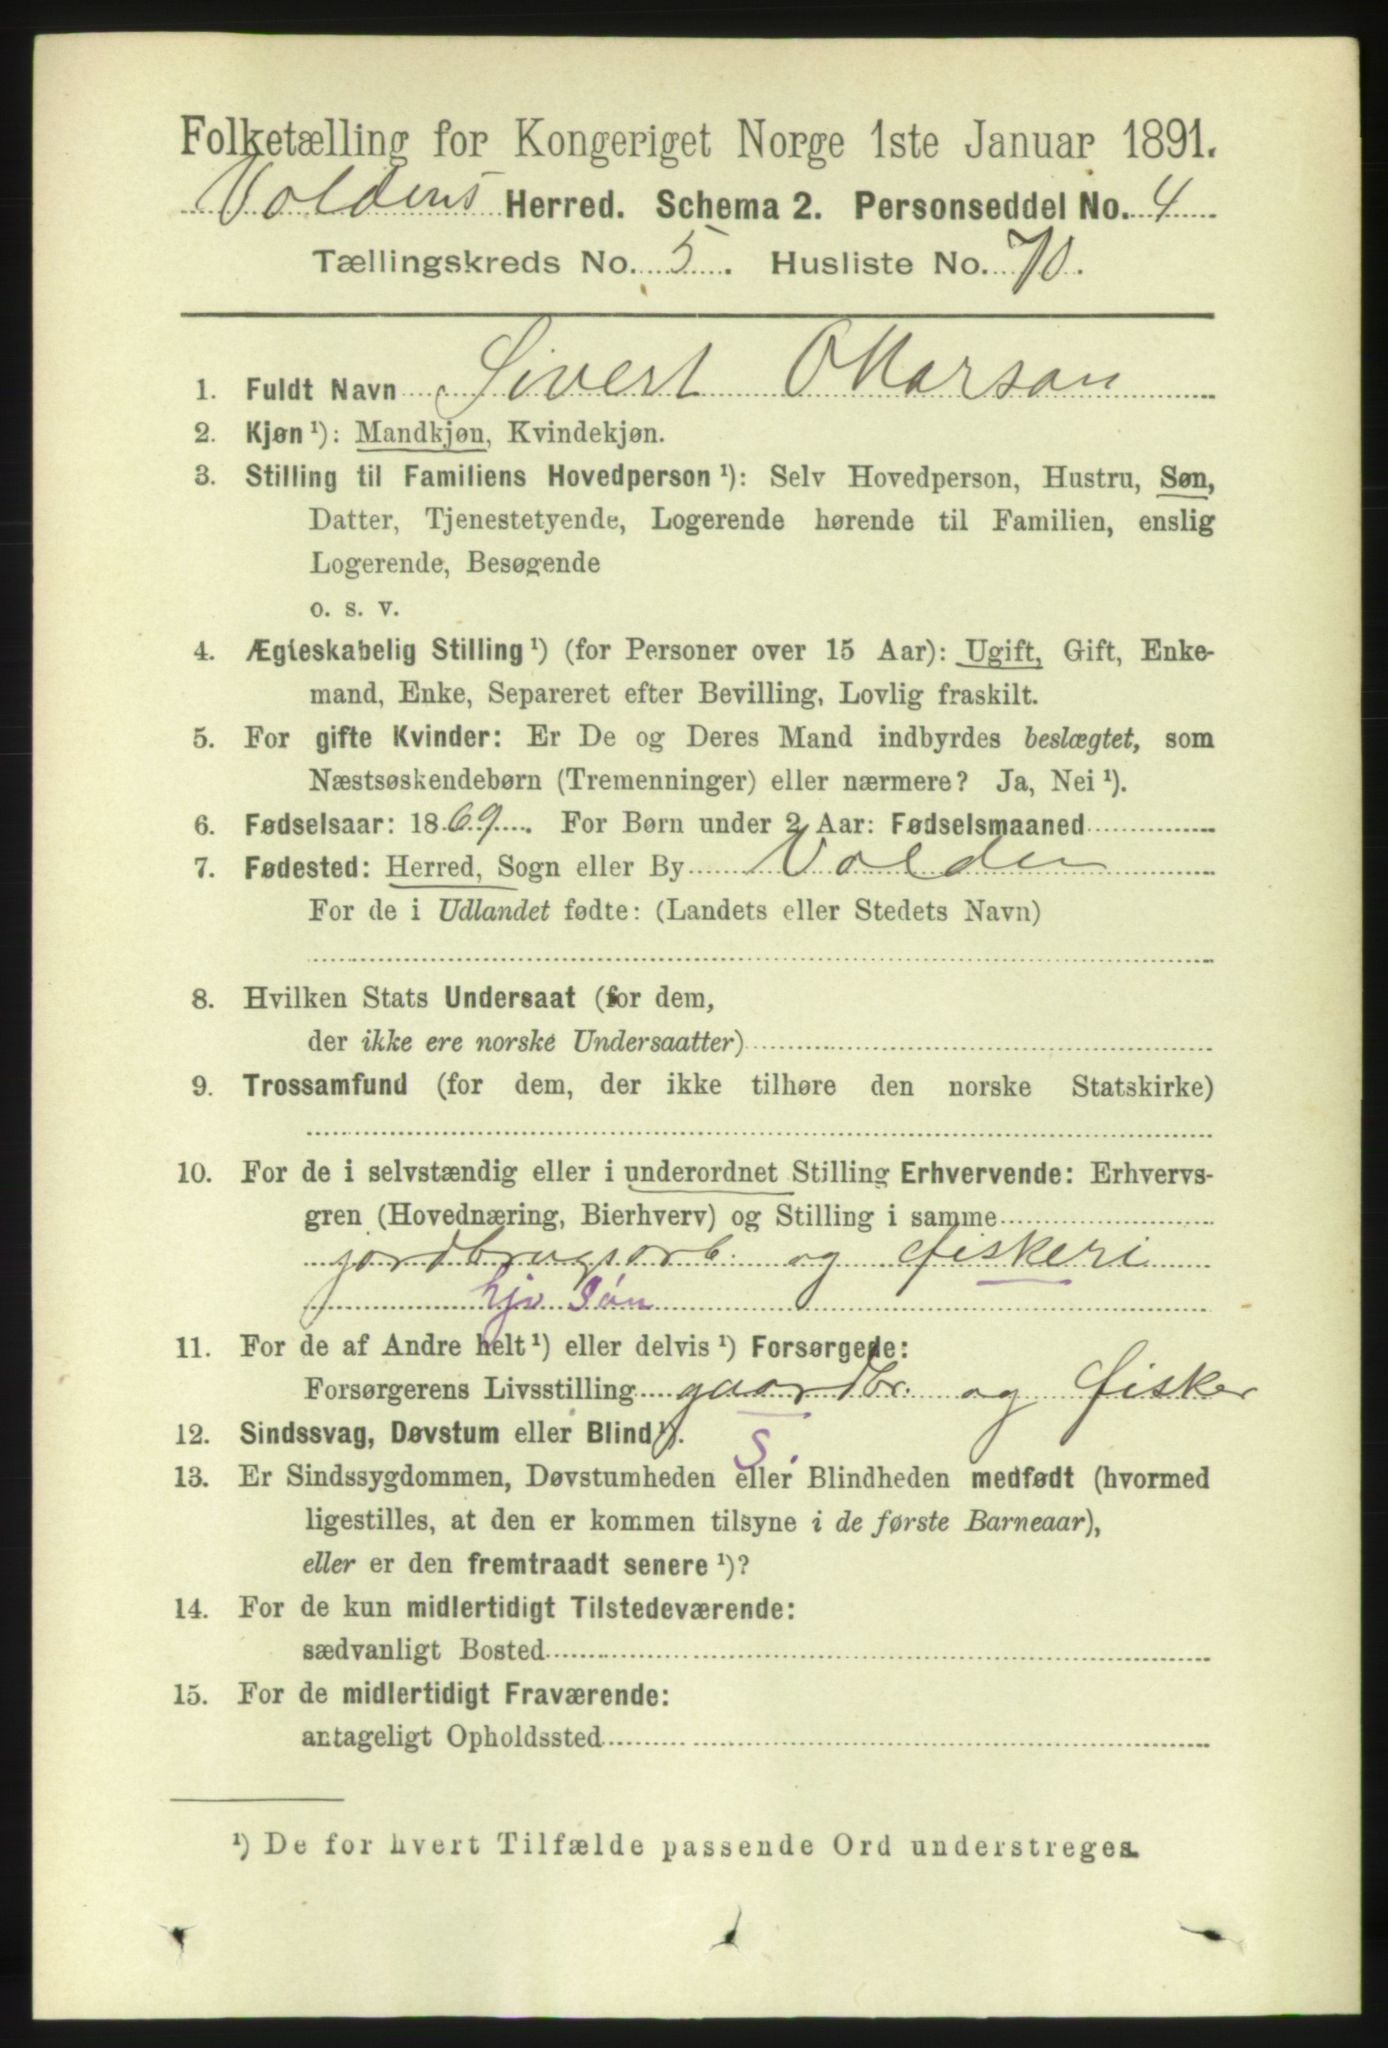 Folketælling for Kongeriget Norge 1ste Januar 1891.
Voldens Herred. Schema 2. Personseddel No. 4
Tællingskreds No. 5. Husliste No. 70.
1. Fuldt Navn Sivert Ottarson
2. Kjøn ¹): Mandkjøn, Kvindekjøn.
3. Stilling til Familiens Hovedperson ¹): Selv Hovedperson, Hustru, Søn,
Datter, Tjenestetyende, Logerende hørende til Familien, enslig
Logerende, Besøgende
o. s. v.
4. Ægteskabelig Stilling ¹) (for Personer over 15 Aar): Ugift, Gift, Enke-
mand, Enke, Separeret efter Bevilling, Lovlig fraskilt.
5. For gifte Kvinder: Er De og Deres Mand indbyrdes beslægtet, som
Næstsøskendebørn (Tremenninger) eller nærmere? Ja, Nei ¹).
6. Fødselsaar: 1869. For Børn under 2 Aar: Fødselsmaaned
7. Fødested: Herred, Sogn eller By Volden
For de i Udlandet fødte: (Landets eller Stedets Navn)
8. Hvilken Stats Undersaat (for dem,
der ikke ere norske Undersaatter)
9. Trossamfund (for dem, der ikke tilhøre den norske Statskirke)
10. For de i selvstændig eller i underordnet Stilling Erhvervende: Erhvervs-
gren (Hovednæring, Bierhverv) og Stilling i samme
jordbrugsarb. og fiskeri
hjv Søn
11. For de af Andre helt ¹) eller delvis ¹) Forsørgede:
Forsørgerens Livsstilling gaardbr. og fisker
12. Sindssvag, Døvstum eller Blind ¹). S.
13. Er Sindssygdommen, Døvstumheden eller Blindheden medfødt (hvormed
ligestilles, at den er kommen tilsyne i de første Barneaar),
eller er den fremtraadt senere ¹)?
14. For de kun midlertidigt Tilstedeværende:
sædvanligt Bosted
15. For de midlertidigt Fraværende:
antageligt Opholdssted
¹) De for hvert Tilfælde passende Ord understreges.